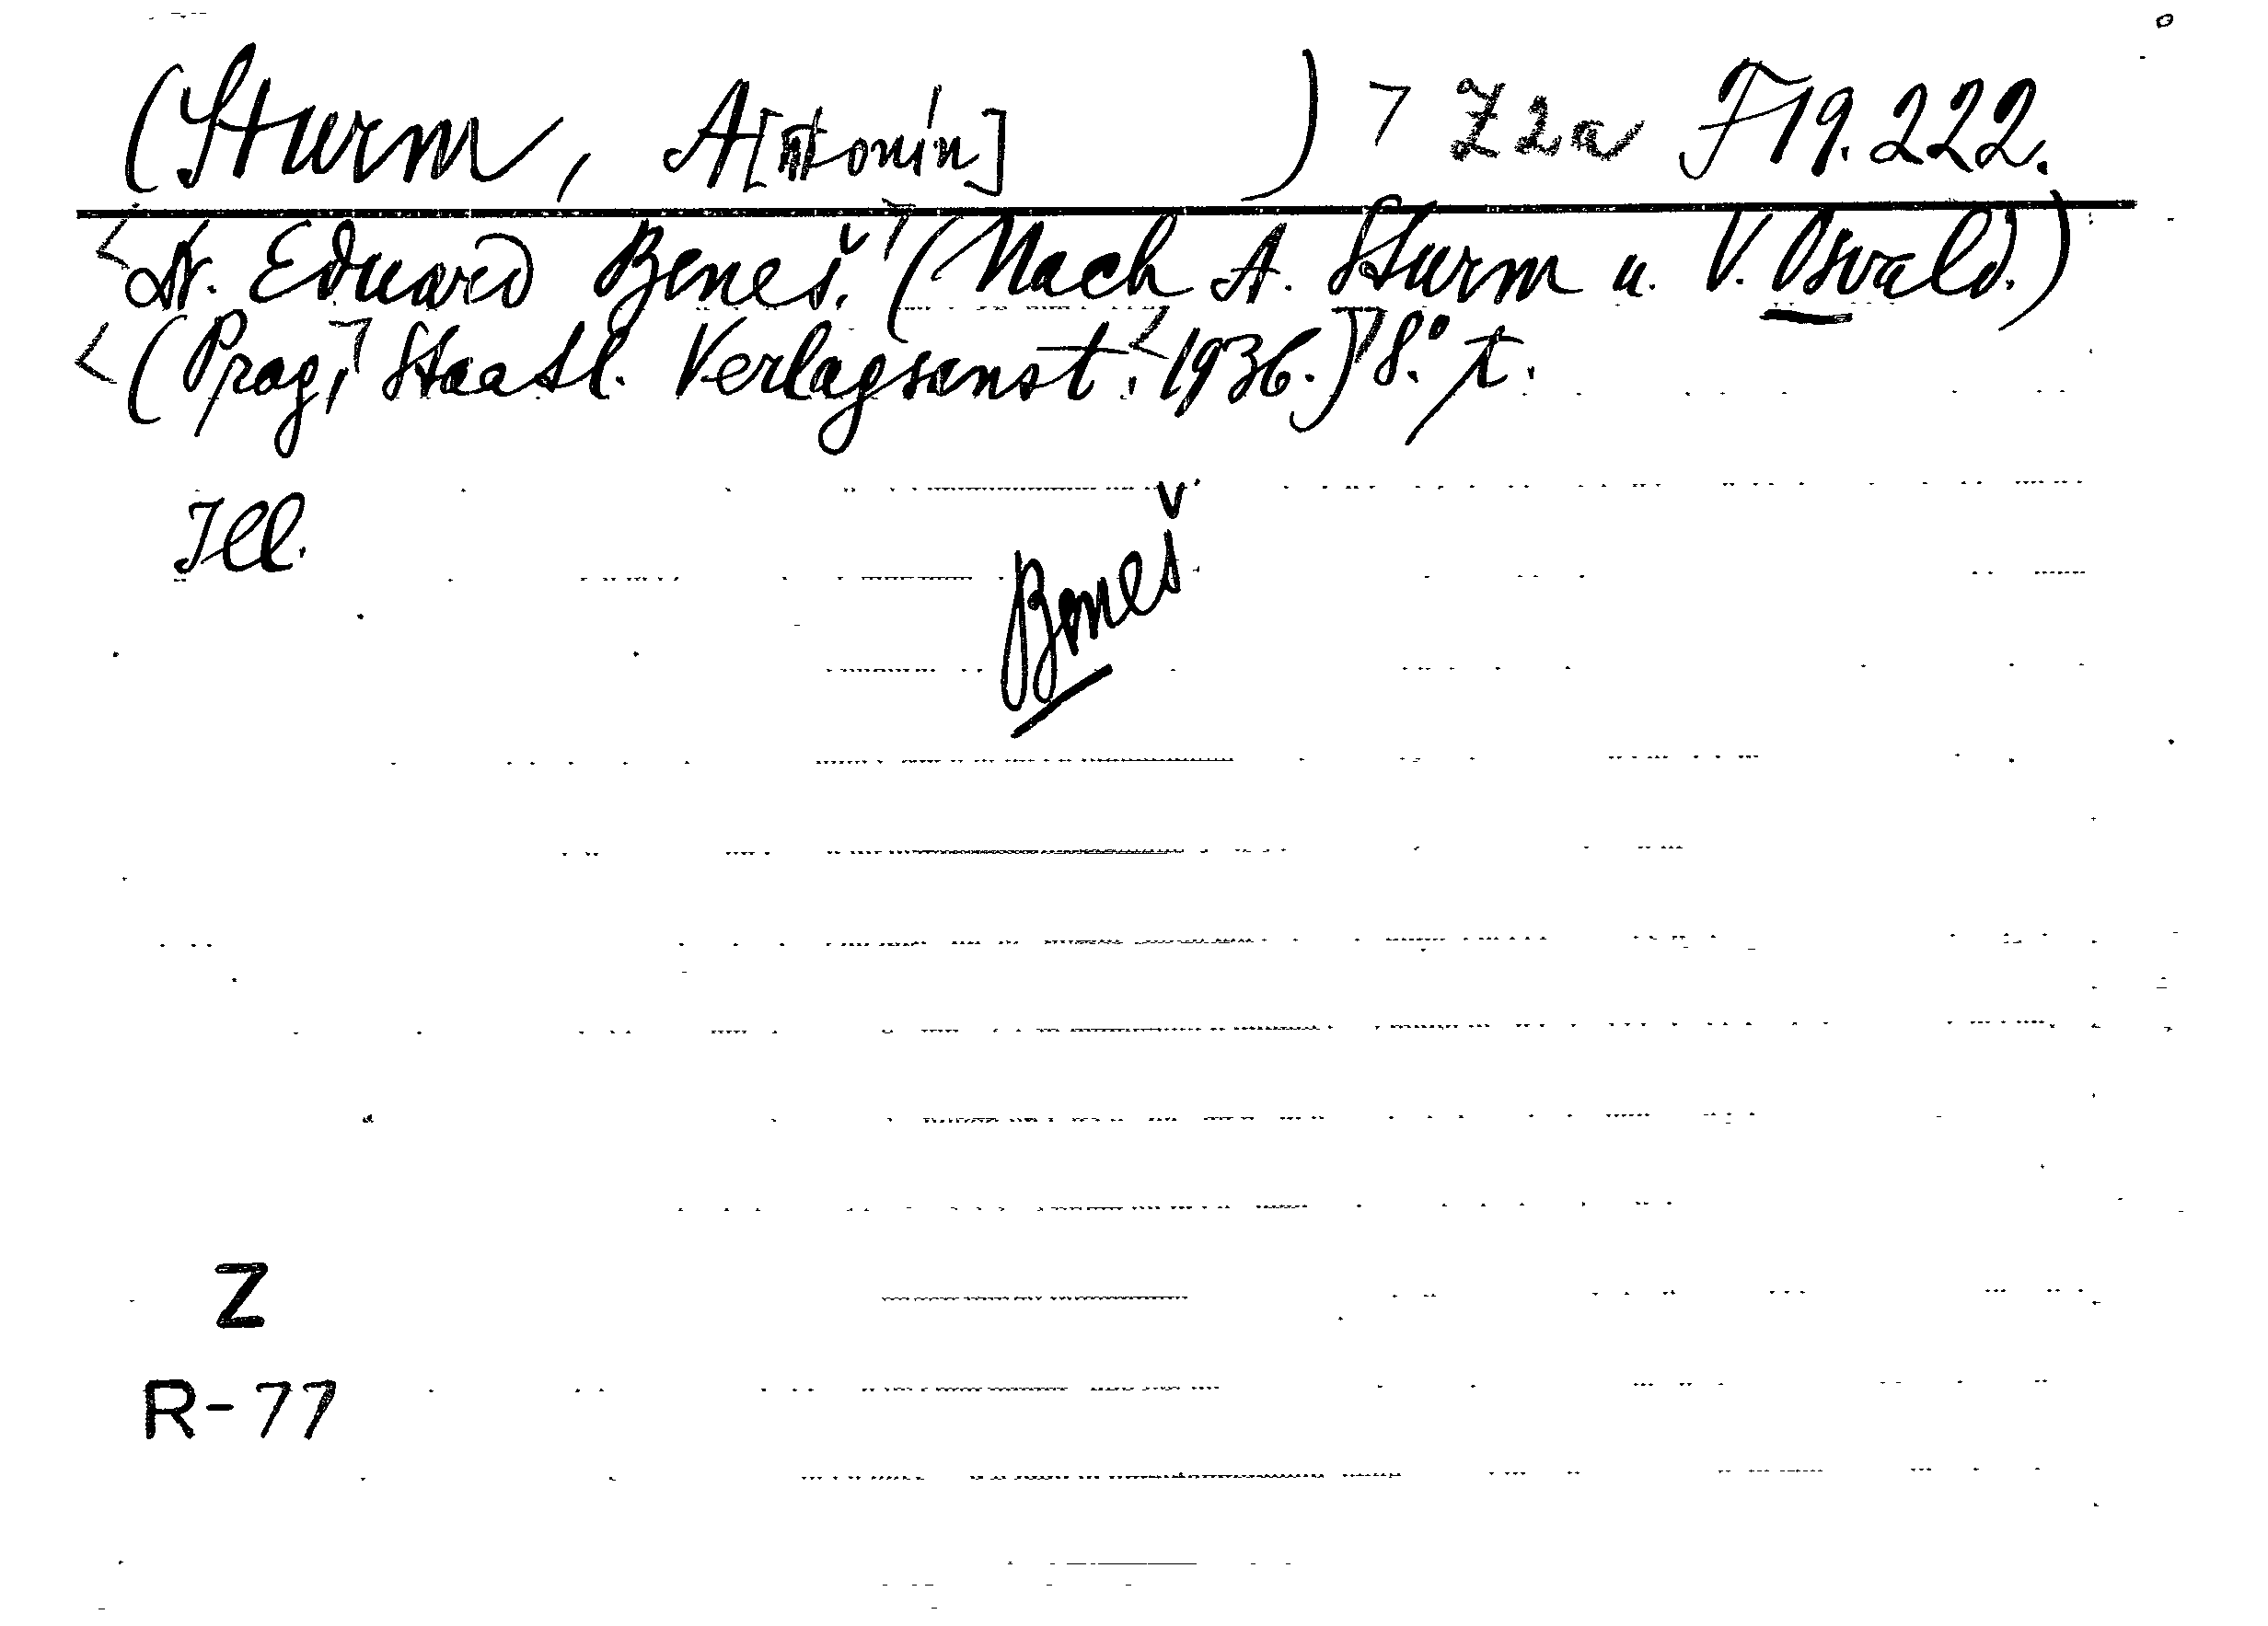 (Sturm, A[ntonín] ) Z2a F19.222.
Dr. Eduard Beneš. (Nach A. Sturm u. V. Osvald.)
(Prag, Staatl. Verlagsanst. 1936.) 8.°
Ill.
Beneš
Z
R-77